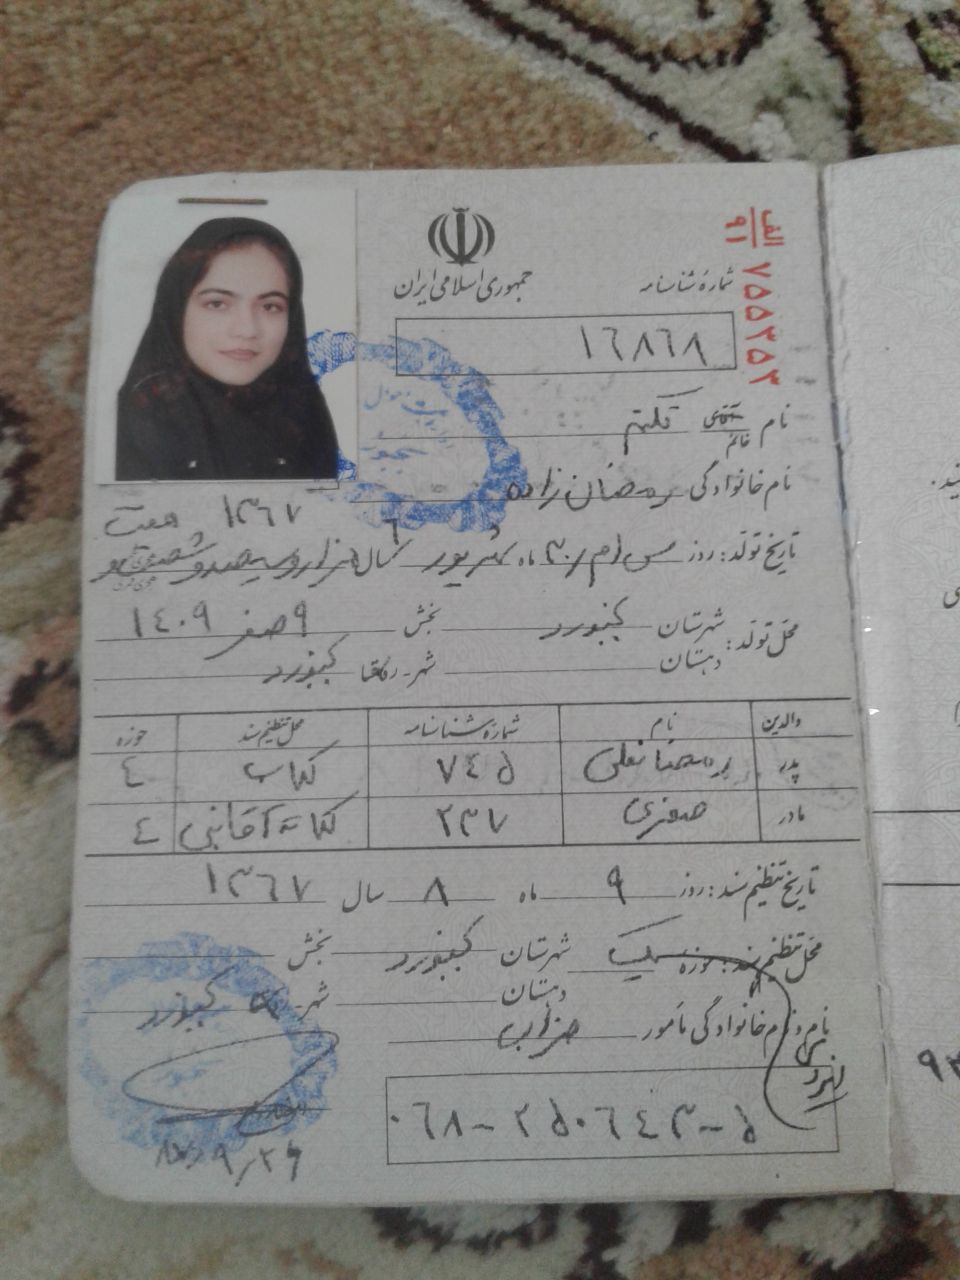 الف
۹۱ ۷۵۵۳۵۳
جمهوری اسلامی ایران
شمارهٔ شناسنامه
۱۶۸۶۸
نام آقای خانم تکتم
نام خانوادگی رمضان زاده
۱۳۶۷ هفت
تاریخ تولد: روز سی ام ۳۰ ماه شهریور ۶ سال هزار و سیصد و شصت و
محل تولد: شهرستان بجنورد بخش ۹ صفر ۱۴۰۹
دهستان شهر - بجنورد
والدین نام شمارهٔ شناسنامه محل تنظیم سند حوزه
پدر رمضانعلی ۷۴۵ ۴
مادر صغری ۲۳۷ ۴
تاریخ تنظیم سند: روز ۹ ماه ۸ سال ۱۳۶۷
محل تنظیم سند: حوزه یک شهرستان بجنورد بخش
دهستان شهر - بجنورد
نام و نام خانوادگی مأمور
۰۶۸-۲۵۰۶۴۳-۵